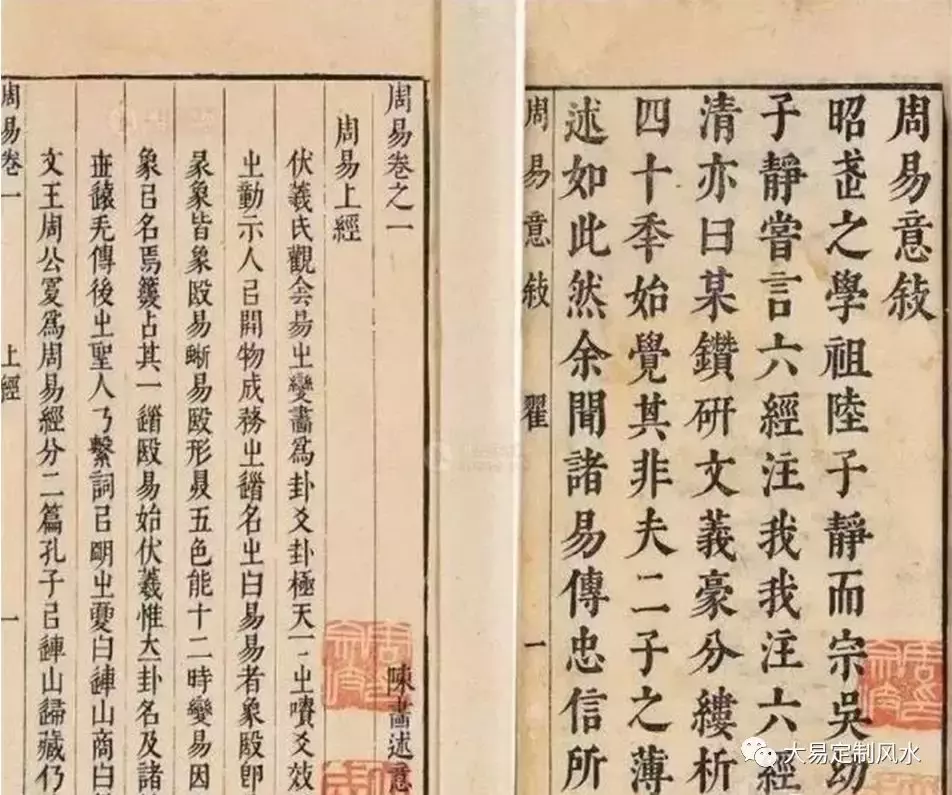 周易意敍
昭武之學祖陸子靜而宗吳幼
子靜嘗言六經注我我注六經
清亦曰某鑽硏文義豪分縷析
四十秊始覺其非夫二子之薄
述如此然余聞諸易傳忠信所
周易意敍 翟 一
周易卷之一 陳 述意
周易上經
伏羲氏觀侌昜㞢變畫爲卦爻卦極天丅㞢嘖爻效
㞢動示人㠯開物成務㞢 名㞢曰易易者象殹卽
彖象皆象殹易蜥易殹形 五色能十二時變易因
象㠯名焉 占其一 殹易始伏羲惟 卦名及諸
无傳後㞢聖人乃繫詞㠯明㞢 曰連山商曰
文王周公 爲周易經分二篇孔子㠯連山歸藏仍
周易卷一 上經 一
大易定制风水